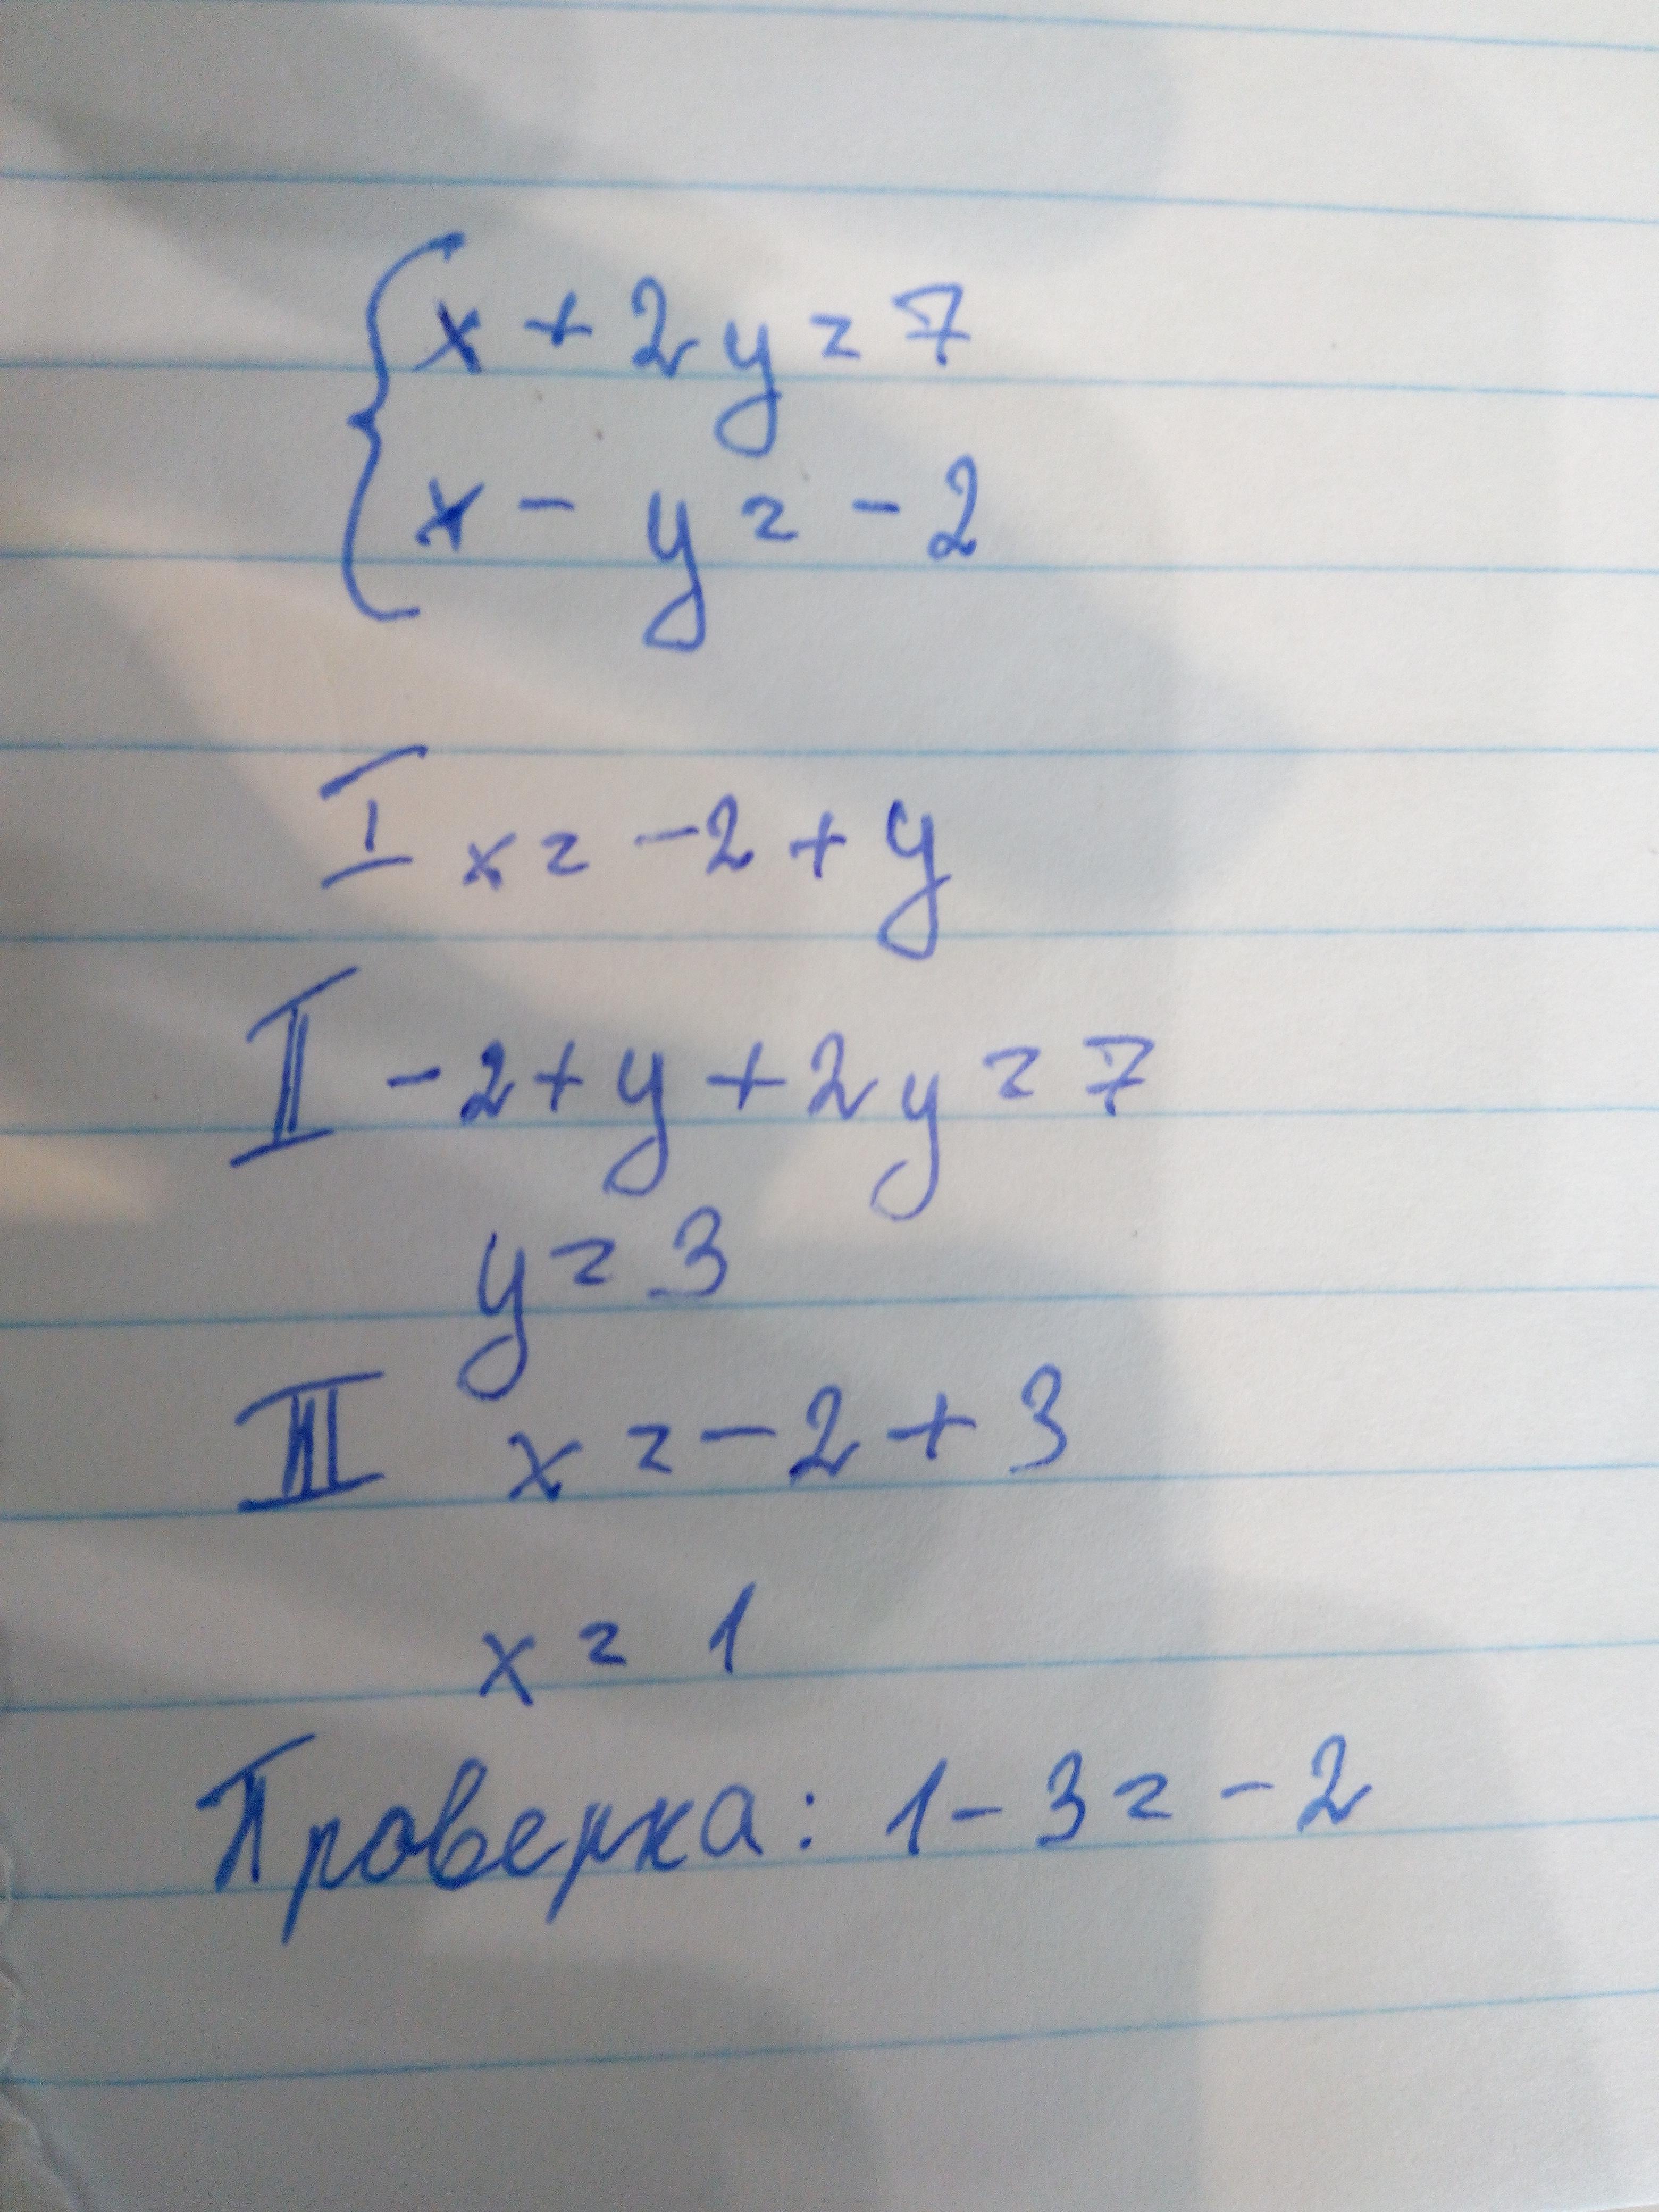 {x + 2y = 7
x - y = -2
I x = -2 + y
II -2 + y + 2y = 7
y = 3
III x = -2 + 3
x = 1
Проверка: 1 - 3 = -2